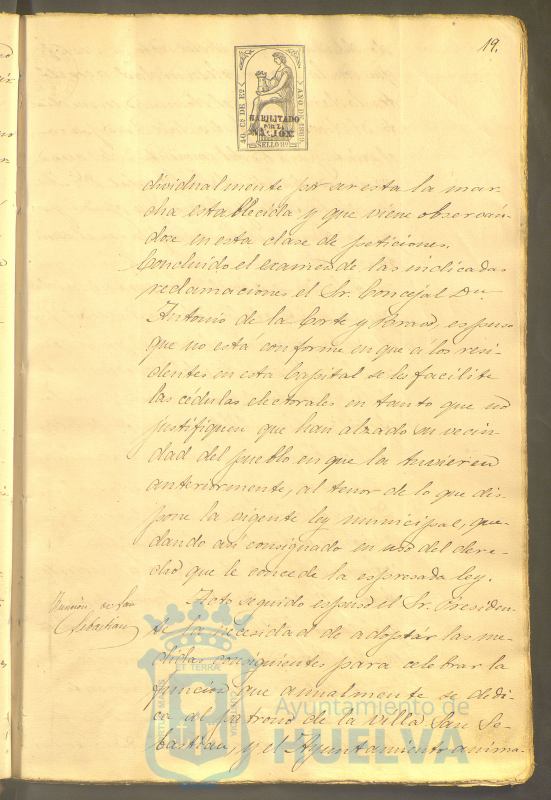 19.
40 Cs DE Eo
AÑO DE 1869
HABILITADO
POR LA
NACION
SELLO 9º
dividualmente por ser esta la mar-
cha establecida y que viene observán-
dose en esta clase de peticiones.
Concluido el examen de las indicadas
reclamaciones el Sr. Concejal Dn.
Antonio de la Corte y Bravo, espuso
que no está conforme en que á los resi-
dentes en esta Capital se les facilite
las cédulas electorales en tanto que no
justifiquen que han alzado su vecin-
dad del pueblo en que la tuvieren
anteriormente, al tenor de lo que dis-
pone la vigente ley municipal, que-
dando así consignado en uso del dere-
cho que le concede la espresada ley.
Función de San
Sebastian
Acto seguido espuso el Sr. Presiden-
te la necesidad de adoptár las me-
didas consiguientes para celebrar la
función que anualmente se dedi-
ca al patrono de la villa San Se-
bastian, y el Ayuntamiento anima-
ET TERRA
PORTUS MARIS
Ayuntamiento de
HUELVA